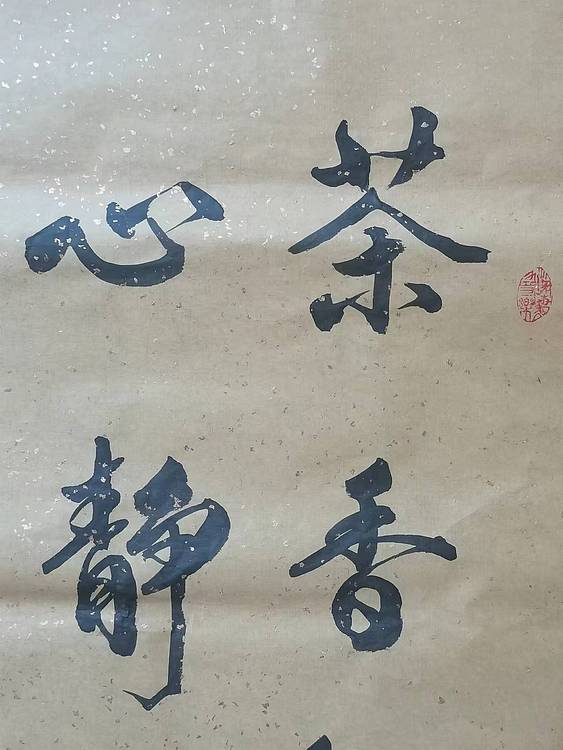 茶香
心静